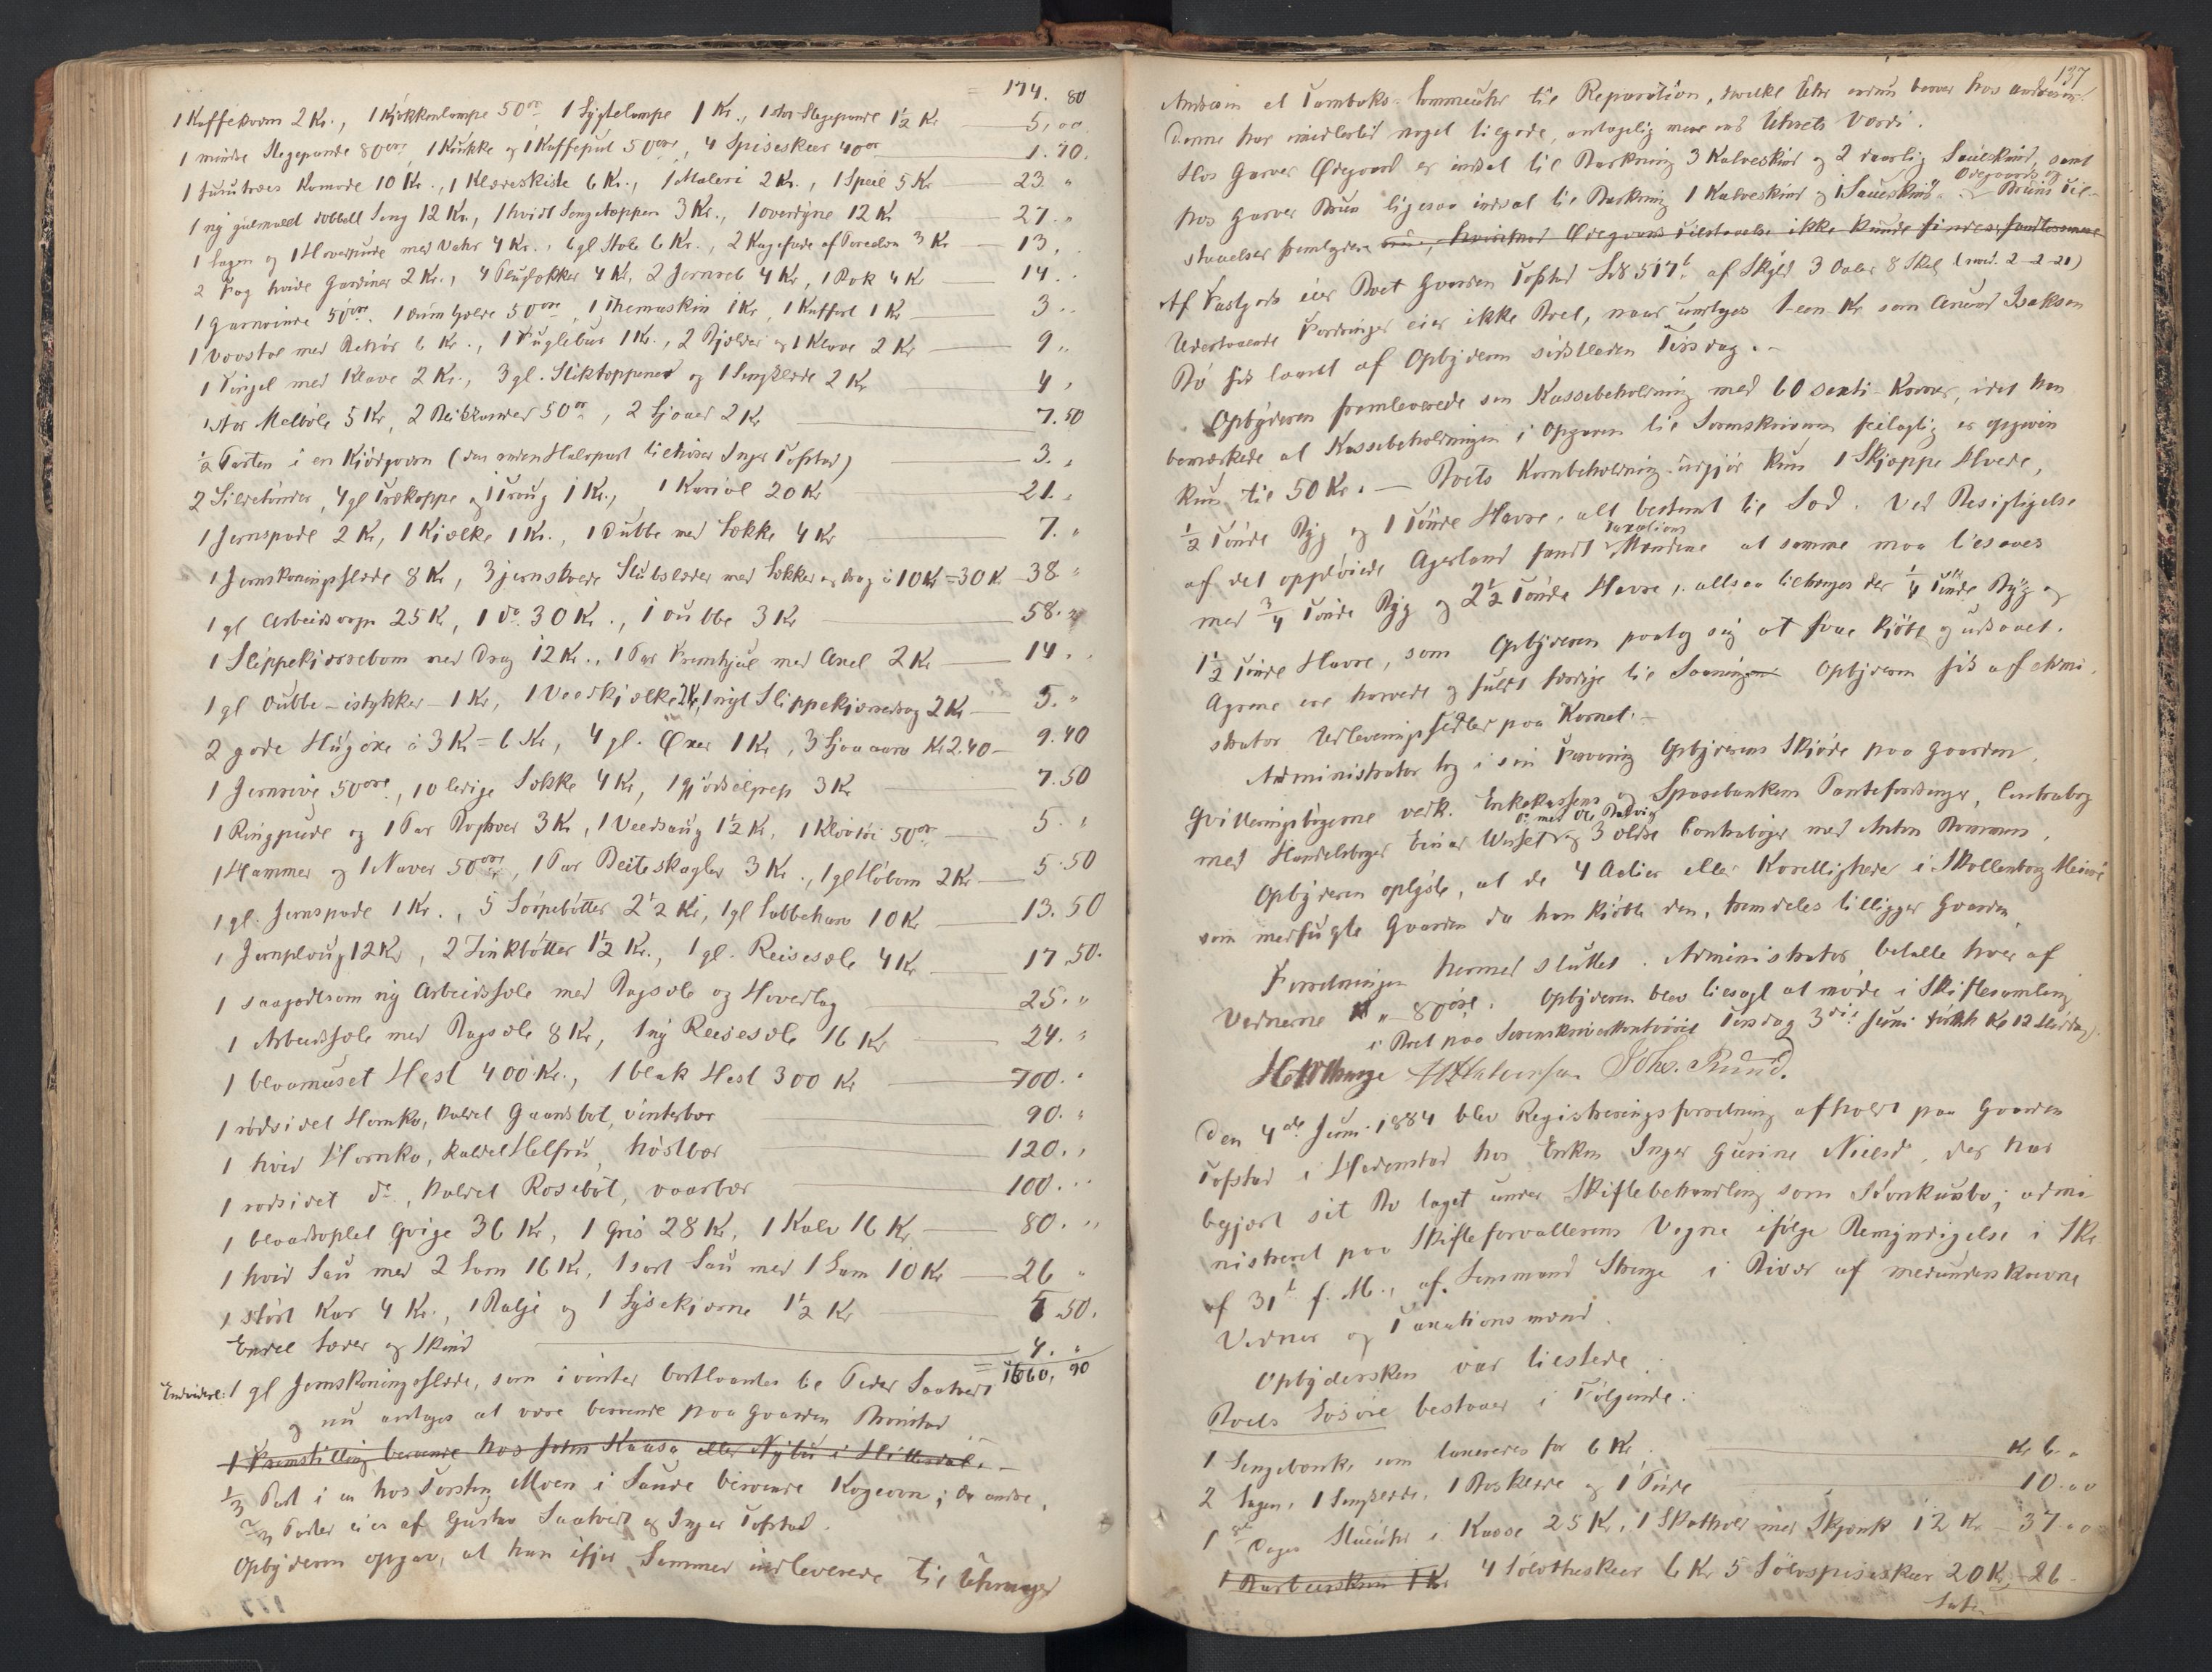 174. 80
1 Kaffekvern 2 Kr., 1 Kjøkkenlampe 50 øre, 1 Lygtelampe 1 Kr., 1 stor Stegepande 1½ Kr 5,00
1 mindre Stegepande 80 øre, 1 Krukke og 1 Kaffepul 50 øre, 4 Spiseskeer 40 øre 1.70.
1 furutræes Komode 10 Kr., 1 Klædeskiste 6 Kr., 1 Maleri 2 Kr., 1 Speil 5 Kr 23 "
1 ny gulmalet dobbelt Seng 12 Kr., 1 hvidt Sengetæppen 3 Kr., 1 overdyne 12 Kr 27 "
1 Lagen og 1 Hovedpude med Vahr 4 Kr., 6 gl Stole 6 Kr., 2 Kagefade af Porcelæn 3 Kr 13,
2 Fag hvide Gardiner 2 Kr., 4 Flugløkker 4 Kr, 2 Jernreb 4 Kr, 1 Rok 4 Kr 14 ..
1 Garnvinde 50 øre, 1 50 øre, 1 Themaskin 1 Kr, 1 Kuffert 1 Kr 3 ..
1 Vævstol med Rehør 6 Kr., 1 Fuglebur 1 Kr., 2 Bjelder og 1 Klave 2 Kr 9 ,,
1 Fingel med Klave 2 Kr., 3 gl. Stiktæppener og 1 Sengklæde 2 Kr 4 ,
1 stor Melbøle 5 Kr, 2 50 øre, 2 Ljaaer 2 Kr 7.50
½ Parten i en Kjørgevon (den anden Halvpart tilhører Inger Tofstad) 3. ,
2 Sildetønder, 4 gl Trækoppe og 1 Traug 1 Kr., 1 Kariol 20 Kr 21. ,
1 Jernspade 2 Kr, 1 Kjælke 1 Kr., 1 Dubbe med Lække 4 Kr 7. "
1 Jernskoningsslæde 8 Kr, 3 jernskoede Stubslæder med Lækker og drag à 10 Kr = 30 K 38 "
1 gl Arbeidsvogn 25 K, 1 do 30 Kr., 1 dubbe 3 Kr 58. "
1 Slippekjærrebom med Drag 12 Kr., 1 Par Fremhjul med Axel 2 Kr 14 . .
1 gl Dubbe - istykker - 1 Kr, 1 Veedkjælke 2 Kr, 1 nyt Slippekjærredrag 2 Kr 5. "
2 gode Hugøxe à 3 Kr = 6 Kr, 4 gl. Øxer 1 Kr, 3 Kr 2.40 9.40
1 Jernrive 50 øre, 10 ledige Sække 4 Kr, 1 gjødselgrep 3 Kr 7.50
1 Ringpude og 1 Par 3 Kr, 1 Veedsaug 1½ Kr, 1 Kløvtøi 50 øre 5. "
1 Hammer og 1 Naver 50 øre, 1 Par Beiteskagler 3 Kr., 1 gl Høbom 2 Kr 5.50
1 gl. Jernspade 1 Kr., 5 Sørpebøtter 2½ Kr, 1 gl Labbeharv 10 Kr 13.50
1 Jernploug 12 Kr, 2 Zinkbøtter 1½ Kr., 1 gl. Reisesæle 4 Kr 17.50.
1 saagodtsom ny Arbeidssæle med Bagsæle og Hovedlag 25. "
1 Arbeidssæle med Bagsæle 8 Kr, 1 ny Reisesæle 16 Kr 24. "
1 blaamuset Hest 400 Kr., 1 blak Hest 300 Kr 700. "
1 rødsidet Hornko, kaldet Gaardsbot, vinterbær 90. "
1 hvid Hornko, kaldet Helfru, høstbær 120. ,
1 rødsidet do, kaldet Rosebot, vaarbær 100. "
1 blaadroplet Qvige 36 Kr, 1 Gris 28 Kr, 1 Kalv 16 Kr 80. "
1 hvid Sau med 2 Lam 16 Kr, 1 sort Sau med 1 Lam 10 Kr 26 "
1 stort Kar 4 Kr., 1 Balje og 1 Lysekjærne 1½ Kr 5.50.
Endel Læder og Skind 4. "
= 1660, 90
Endvidere: 1 gl Jernskoningsslæde, som ivinter bortlaantes til Peder Saatvedt
og nu antages at være beroende paa Gaarden Brunstad
1 Fremstilling beroende hos John Kaasa eller Nybu i Hitterdal.
⅓ Part i en hos Torsten Moen i Sande beroende Kogeovn; de andre
⅔ Parter eies af Gustav Saatvedt og Inger Tofstad.
Opbyderen opgav, at han ifjor Sommer indleverede til Uhrmager
137
Andsam et Tombaks-Lommeuhr til Reparation, hvilke Uhr endnu beror hos
denne har imidlertid noget tilgode, antagelig mere end Uhrets Værdi.
Hos Garver Ødegaard er indsat til Barkning 3 Kalveskind og 2 daarlig Saueskind, samt
hos Garver Bruu ligesaa indsat til Barkning 1 Kalveskind og 1 Saueskind. Ødegaards og Bruus Til-
staaelser fremlagdes hvorimod Ødegaards Tilstaaelse ikke kunde findes
Af Fastgods eier Boet Gaarden Tofstad LN 517b af Skyld 3 Daler 8 Skel (med. 2-2-21)
Udestaaende Fordringer eier ikke Boet, naar undtages 1-en Kr som Anund Isaksen
Bø fik laant af Opbyderen sidstleden Tirsdag. -
Opbyderen fremleverede sin Kassebeholdning med 60 sexti - Kroner, idet han
bemærkede at Kassebeholdningen i Opgaven til Sorenskriveren feilagtig er opgiven
kun til 50 Kr. - Boets Kornbeholdning udgjør kun 1 Skjeppe Hvede,
½ Tønde Byg og 1 Tønde Havre, alt bestemt til Sæd. Ved Besigtigelse
af det oppløiede Agerland fandt Taxations Mændene at samme maa tilsaaes
med ¾ Tønde Byg og 2½ Tønde Havre, altsaa tiltrenges der ¼ Tønde Byg og
1½ Tønde Havre, som Opbyderen paatog sig at faae kjøbt og udsaaet.
Agrene ere harvede og fuldt færdige til Saaningen Opbyderen fik af Admi-
strator Udleveringssedler paa Kornet. -
Administrator tog i sin Forvaring Opbyderens Skjøde paa Gaarden,
Qvitteringsbøgerne vedk. Enkekassens og Sparebankens Panteforskrivelser, Contrabog
med Handelsbogen Einar Wessel do med Ole Rudvig og 3 ældre Contrabøger med Anton Brommen.
Opbyderen oplyste, at de 4 Actier eller Herredligheder i Skollenborg Meieri
som medfulgte Gaarden da han kjøbte den, fremdeles tilligger Gaarden.
Forretningen hermed sluttet. Administrator betalte hver af
Vidnerne Kr " 80 øre. Opbyderen blev tilsagt at møde i Skiftesamling
i Boet paa Sorenskriverkontoret Tirsdag 3die Juni førstk Kl 12 Middag.
Joh. Rund.
Den 4de Juni 1884 blev Registreringsforretning afholdt paa Gaarden
Tofstad i Hedenstad hos Enken Inger Gurine Nilsd., der har
begjært sit Bo taget under Skiftebehandling som Konkursbo; admi-
nistreret paa Skifteforvalterens Vegne ifølge Bemyndigelse i Skr
af 31te f. M., af Lensmand Strange i Bivær af medunderskrevne
Vidner og Taxationsmænd.
Opbydersken var tilstede.
Boets Løsøre bestaaer i Følgende:
1 Sengebænk som taxeredes for 6 Kr. Kr 6 "
2 Lagen, 1 Sengklæde, 1 og 1 Pude 10.00
1 8te Dages Stueuhr i Kasse 25 Kr, 1 Skathol med Skjænk 12 Kr 37.00
1 Barberskrin 1 Kr 4 Sølvtheskeer 6 Kr 5 Sølvspiseskeer 20 Kr 26
Lat.